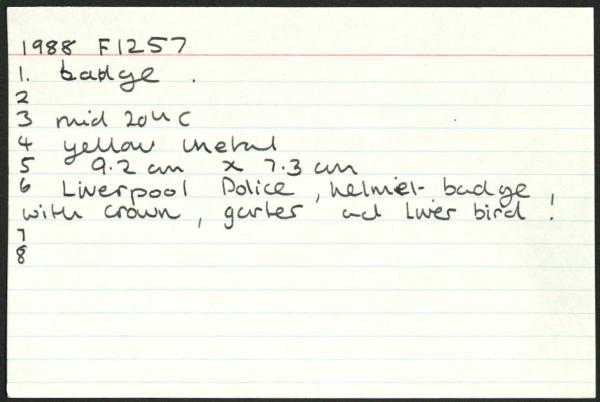 1988 F1257
1. badge .
2
3 mid 20th C
4 yellow metal
5 9.2 cm x 7.3 cm
6 Liverpool Police, helmet badge,
with crown, garter and Liver bird.
7
8